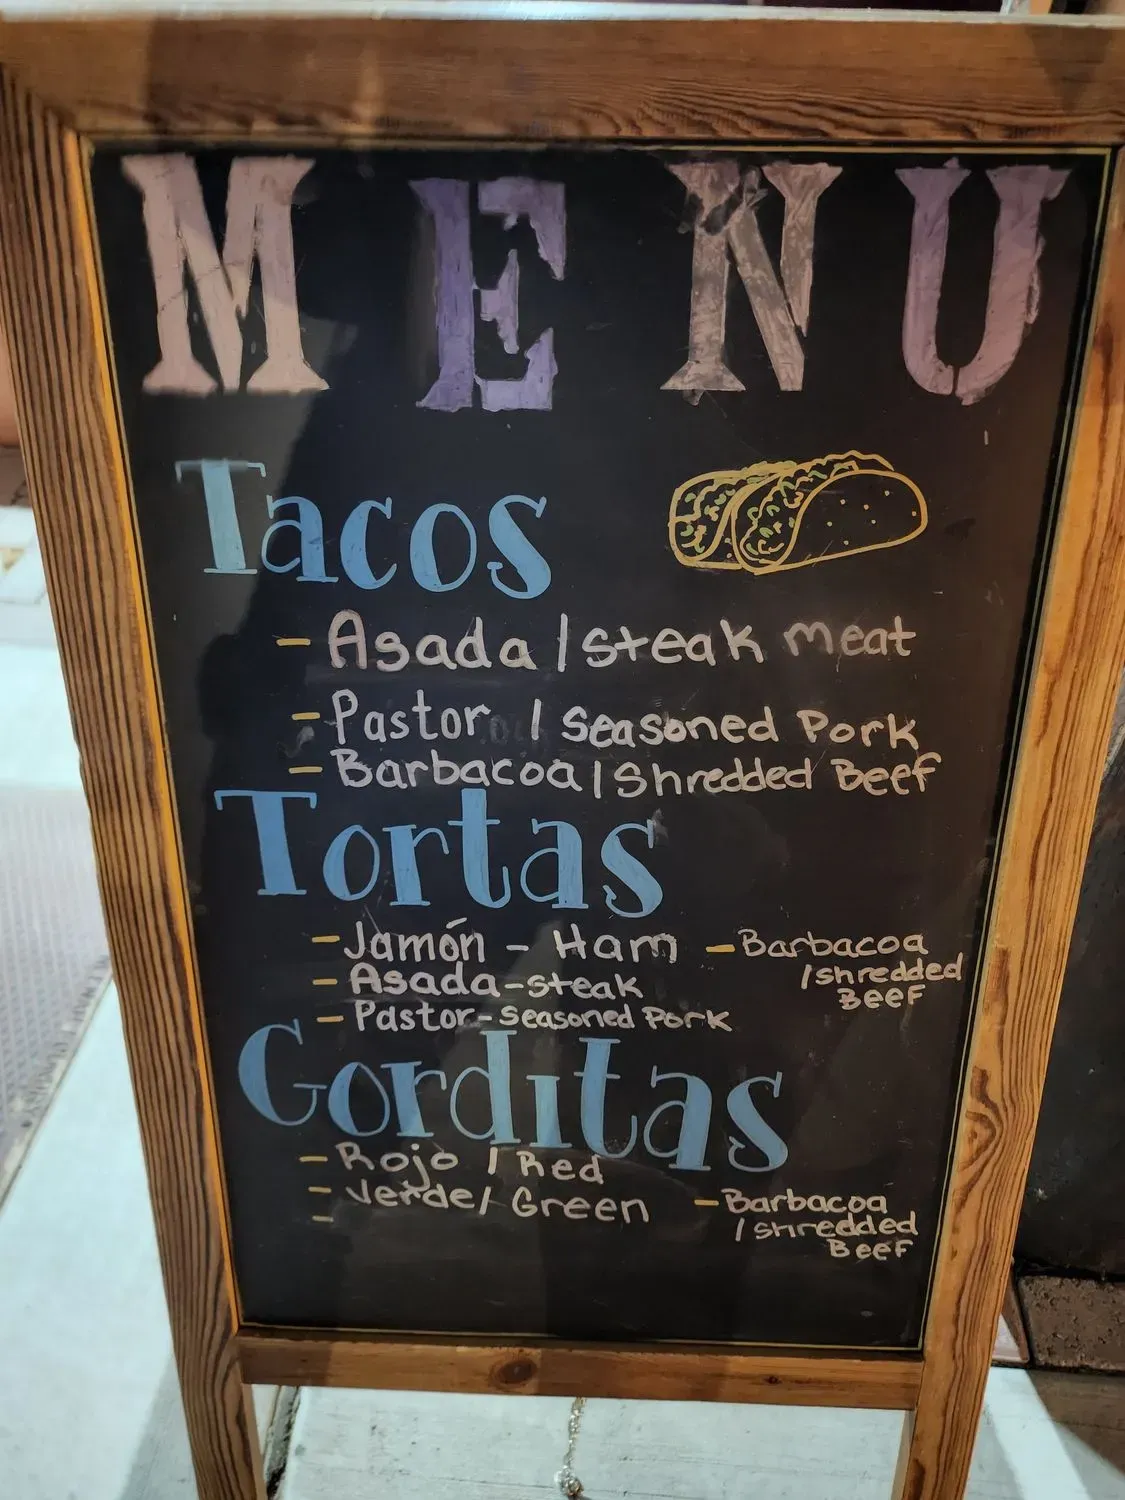 MENU
Tacos
- Asada / steak meat
- Pastor / Seasoned Pork
- Barbacoa / Shredded Beef
Tortas
- Jamón - Ham
- Asada - steak
- Pastor - Seasoned Pork
- Barbacoa
/ shredded
Beef
Gorditas
- Rojo / Red
- Verde / Green
-
- Barbacoa
/ shredded
Beef